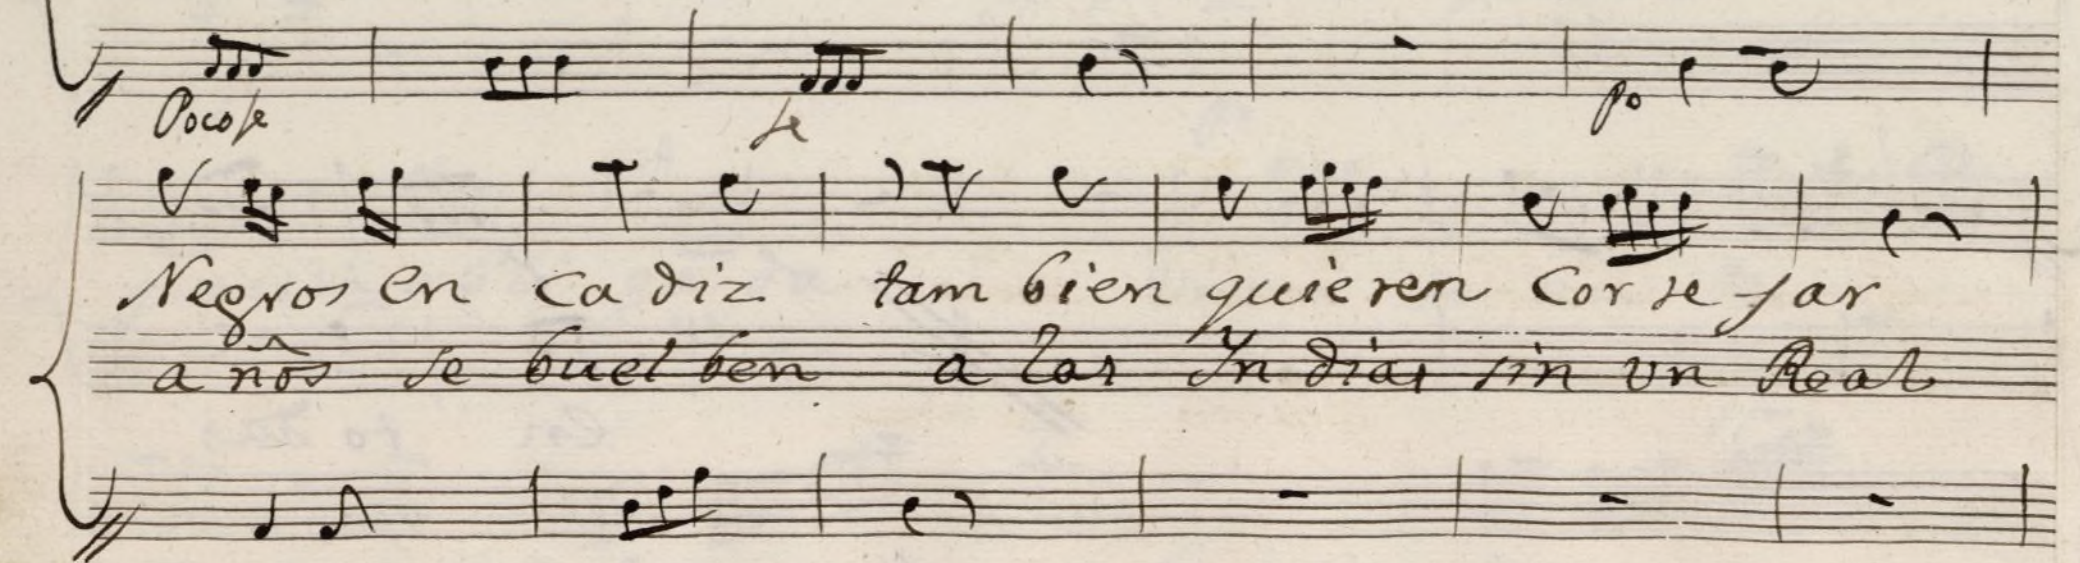 Poco fe fe po
Negros en Ca diz tam bien quieren Cor te jar
a ños se buel ben a las Yn dias sin un Real